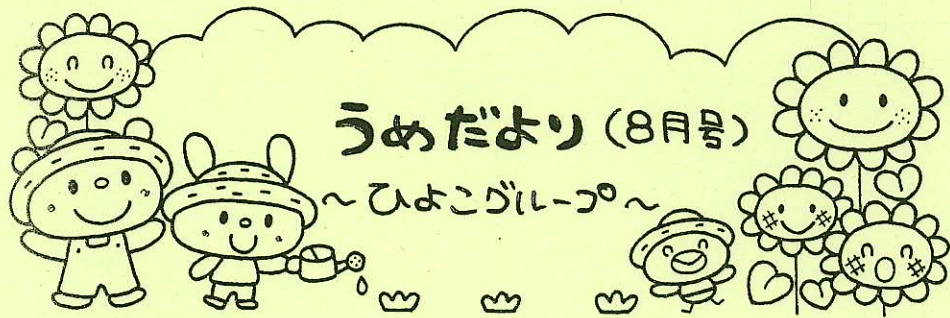 うめだより（8月号）
～ひよこグループ～